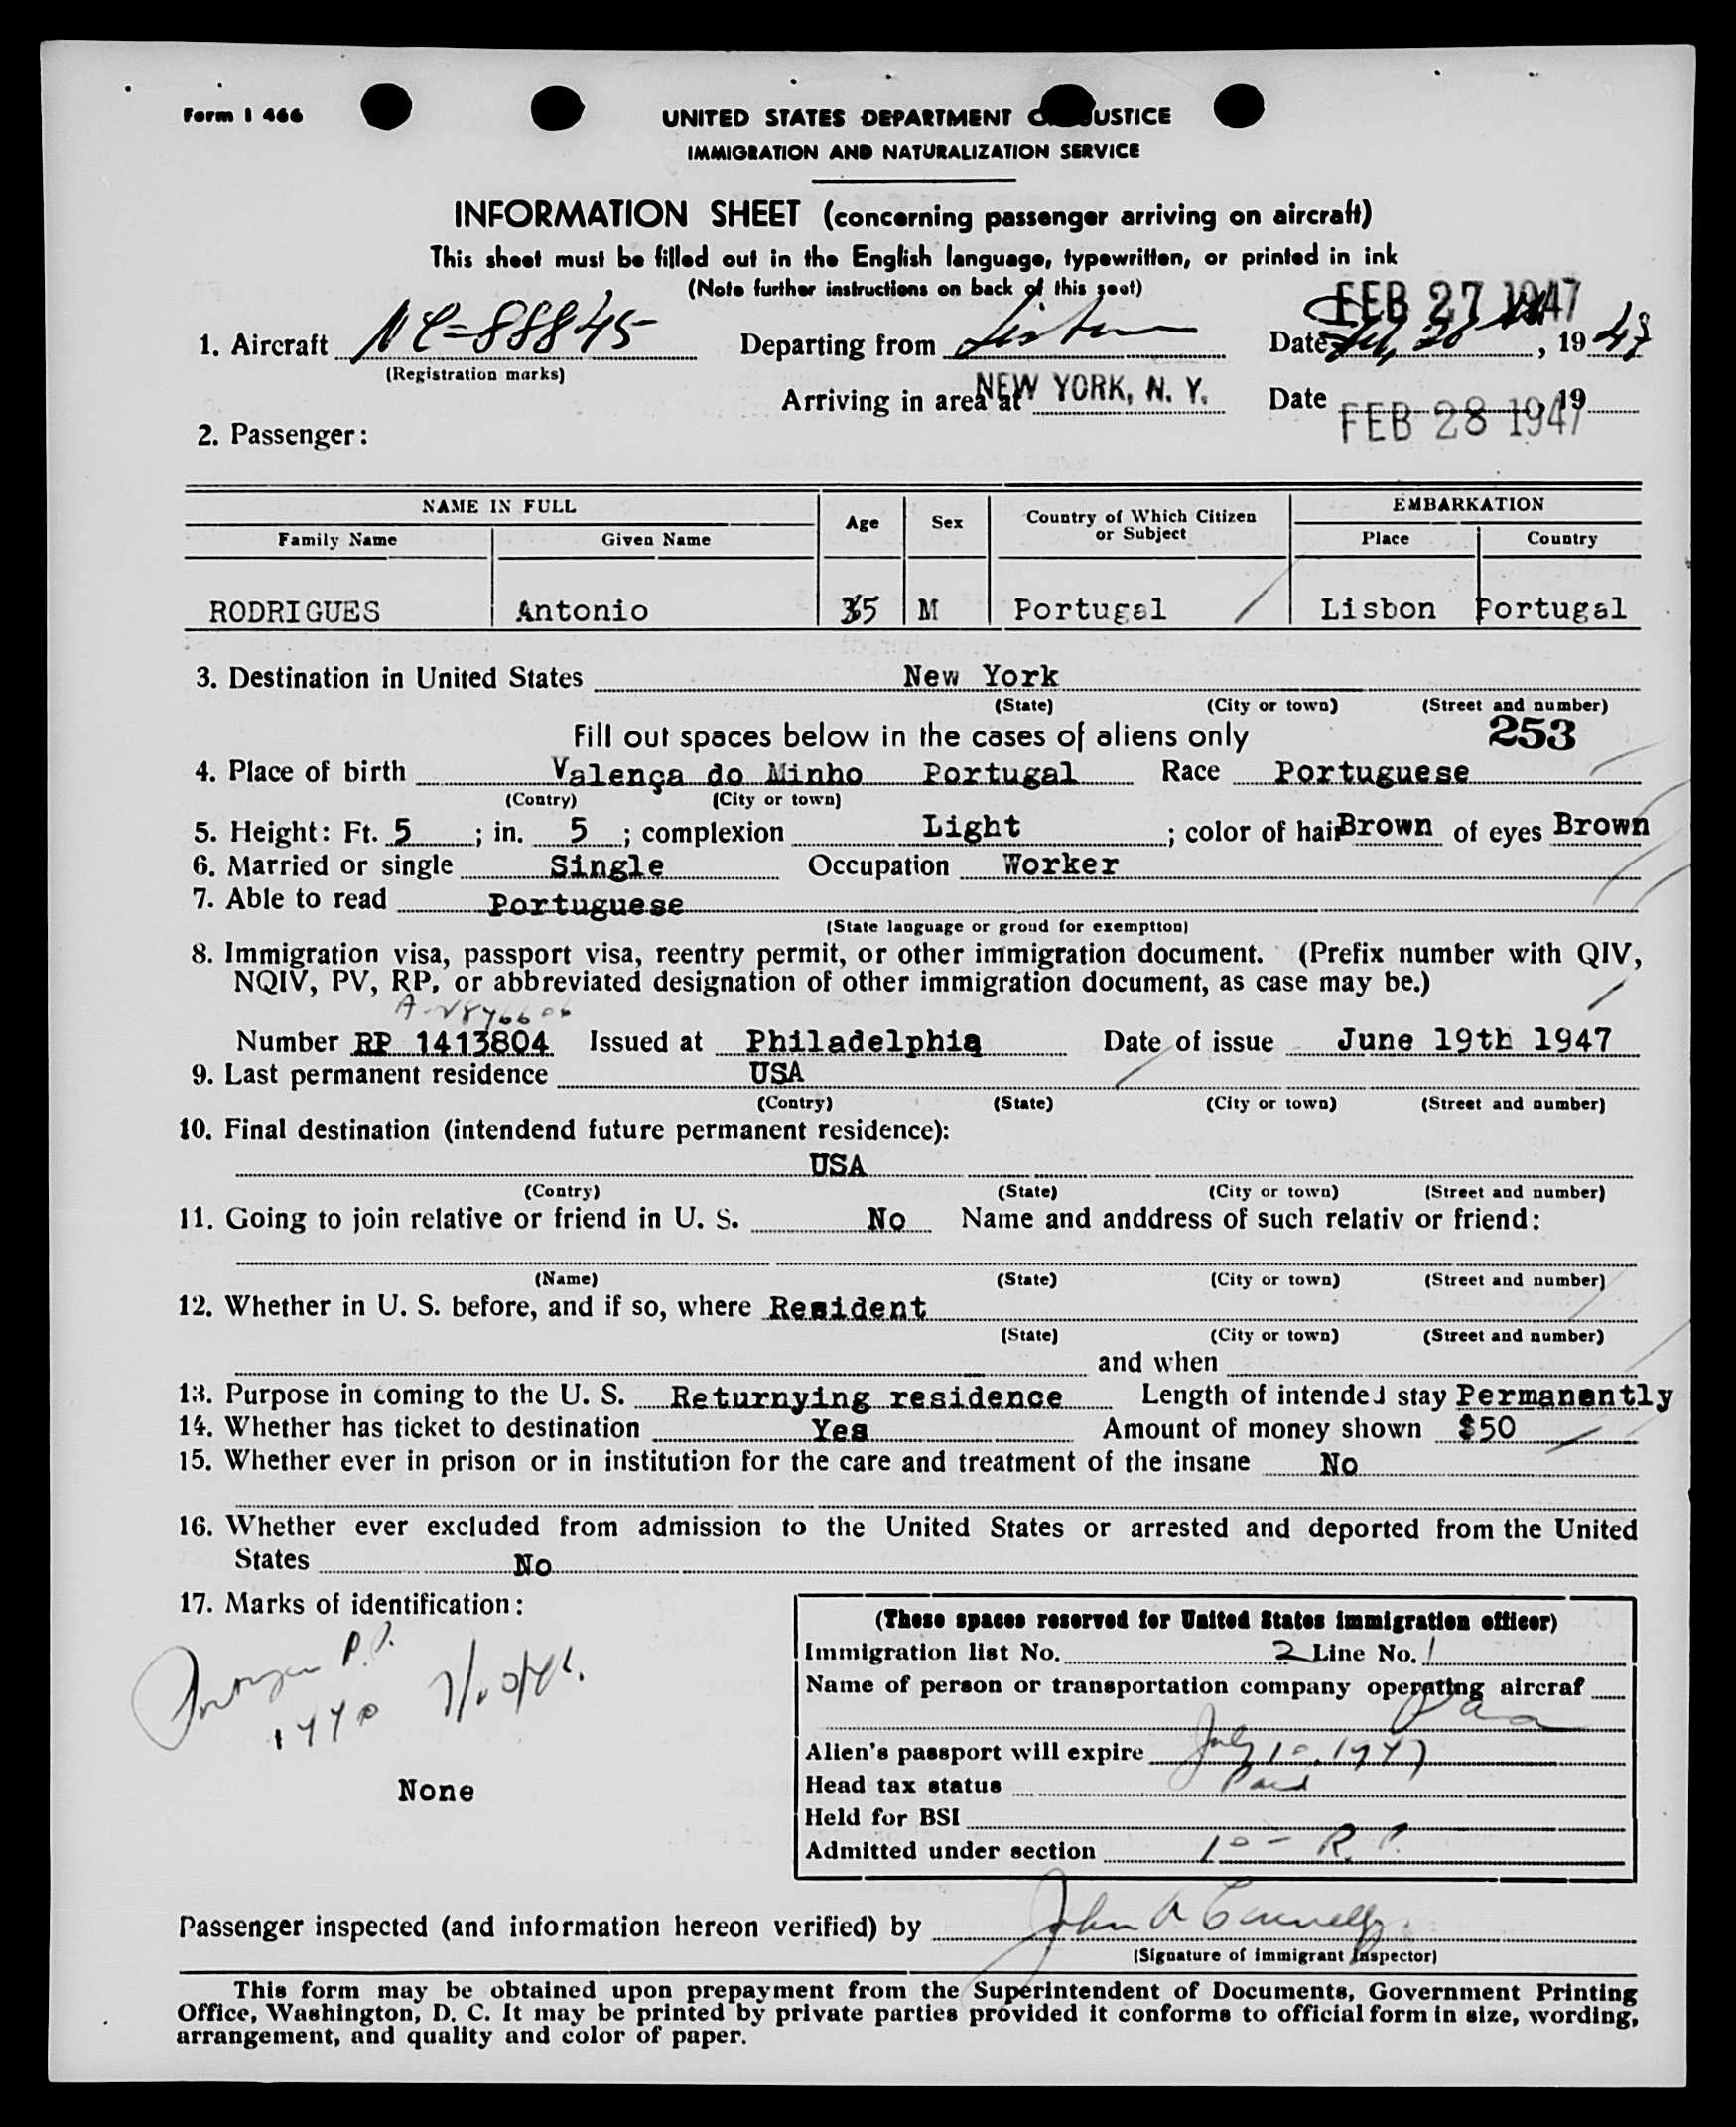 Form I 466
UNITED STATES DEPARTMENT O USTICE
IMMIGRATION AND NATURALIZATION SERVICE
INFORMATION SHEET (concerning passenger arriving on aircraft)
This sheet must be filled out in the English language, typewritten, or printed in ink
(Note further instructions on back of this seet)
FEB 27 1947
1. Aircraft NC-88845 Departing from Lisbon Date , 19 47
(Registration marks)
Arriving in area at NEW YORK, N. Y. Date , 19
FEB 28 1947
2. Passenger:
NAME IN FULL Age Sex Country of Which Citizen or Subject EMBARKATION
Family Name Given Name Place Country
RODRIGUES Antonio 35 M Portugal Lisbon Portugal
3. Destination in United States New York
(State) (City or town) (Street and number)
Fill out spaces below in the cases of aliens only 253
4. Place of birth Valença do Minho Portugal Race Portuguese
(Contry) (City or town)
5. Height: Ft. 5 ; in. 5 ; complexion Light ; color of hair Brown of eyes Brown
6. Married or single Single Occupation Worker
7. Able to read Portuguese
(State language or groud for exemption)
8. Immigration visa, passport visa, reentry permit, or other immigration document. (Prefix number with QIV,
NQIV, PV, RP, or abbreviated designation of other immigration document, as case may be.)
Number RP 1413804 Issued at Philadelphia Date of issue June 19th 1947
9. Last permanent residence USA
(Contry) (State) (City or town) (Street and number)
10. Final destination (intendend future permanent residence):
USA
(Contry) (State) (City or town) (Street and number)
11. Going to join relative or friend in U. S. No Name and anddress of such relativ or friend:
(Name) (State) (City or town) (Street and number)
12. Whether in U. S. before, and if so, where Resident
(State) (City or town) (Street and number)
and when
13. Purpose in coming to the U. S. Returnying residence Length of intended stay Permanently
14. Whether has ticket to destination Yes Amount of money shown $50
15. Whether ever in prison or in institution for the care and treatment of the insane No
16. Whether ever excluded from admission to the United States or arrested and deported from the United
States No
17. Marks of identification:
None
(These spaces reserved for United States immigration officer)
Immigration list No. 2 Line No. 1
Name of person or transportation company operating aircraf
Paa
Alien's passport will expire July 10, 1947
Head tax status Paid
Held for BSI
Admitted under section 10 - R.P.
Passenger inspected (and information hereon verified) by John A Connelly
(Signature of immigrant Inspector)
This form may be obtained upon prepayment from the Superintendent of Documents, Government Printing
Office, Washington, D. C. It may be printed by private parties provided it conforms to official form in size, wording,
arrangement, and quality and color of paper.